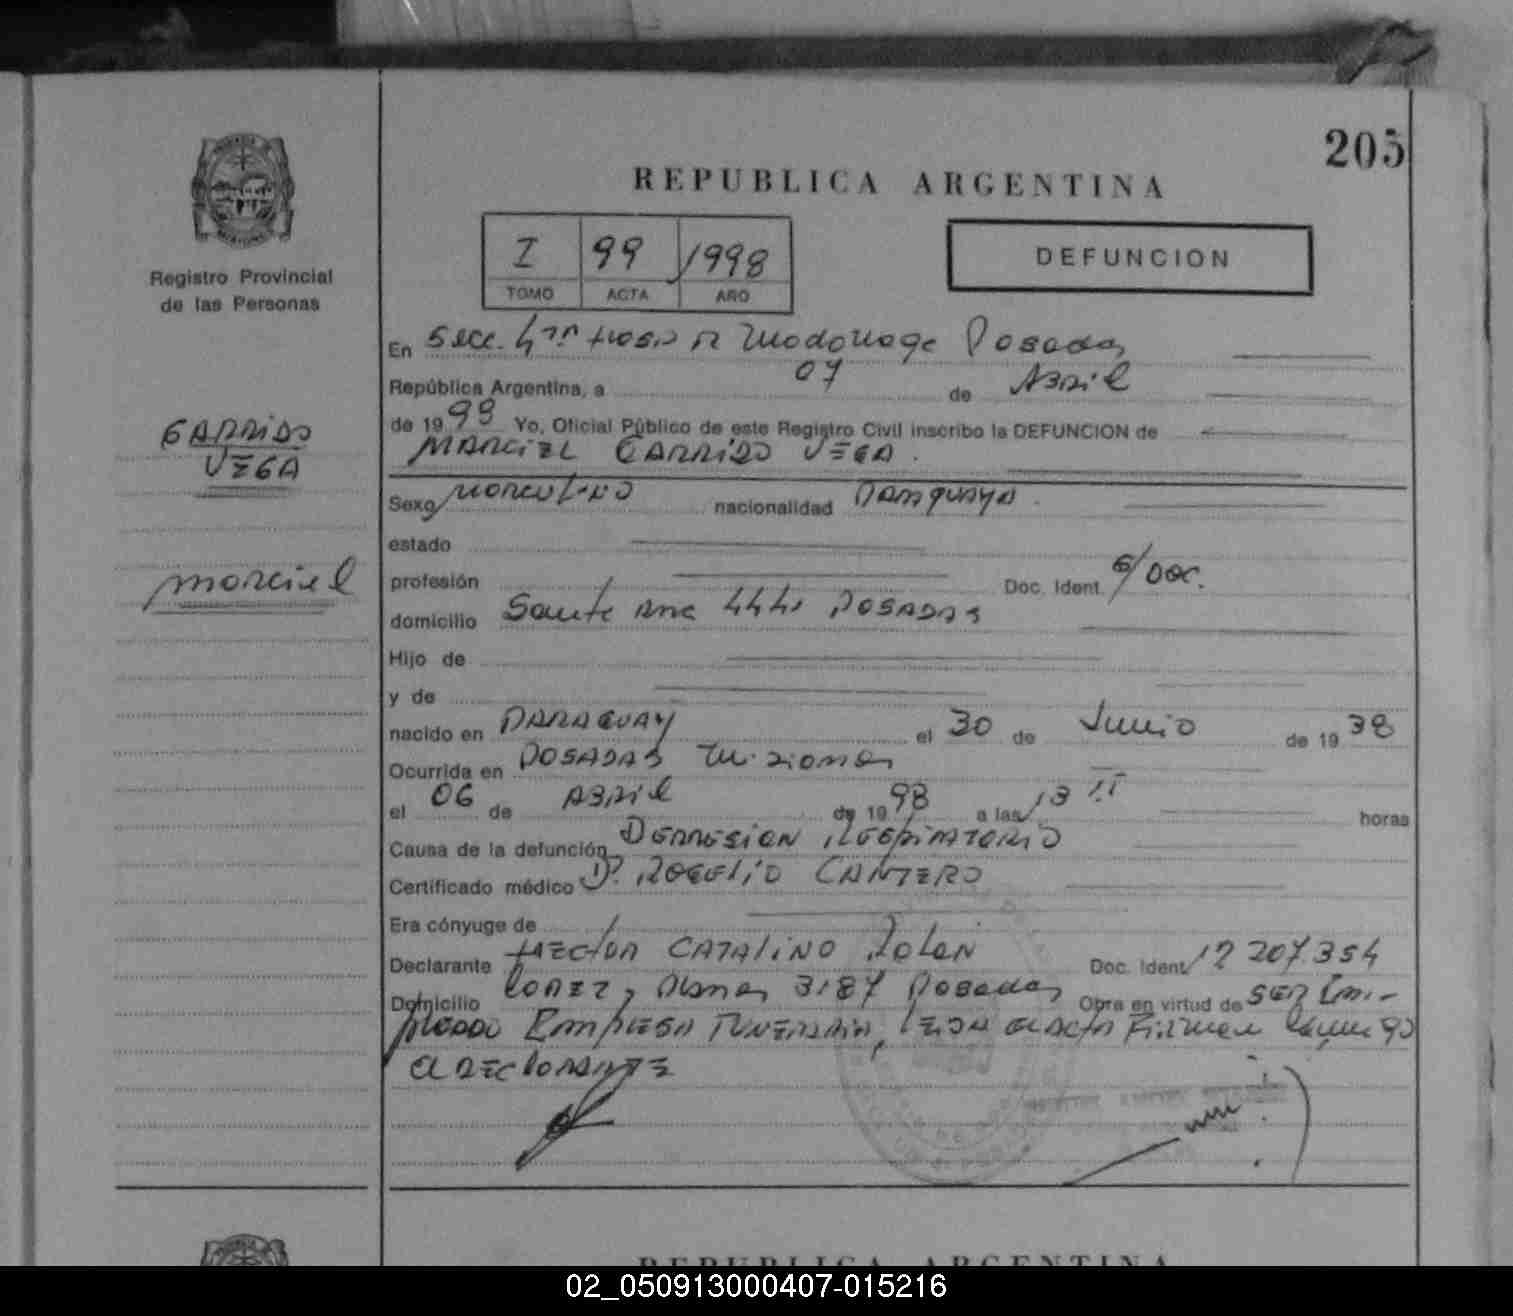 205
REPUBLICA ARGENTINA
I 99 1998
TOMO ACTA AÑO
DEFUNCION
Registro Provincial
de las Personas
En Secc. 4ta Hosp R Madariaga Posadas
República Argentina, a 07 de Abril
de 1998 Yo, Oficial Público de este Registro Civil inscribo la DEFUNCION de
MARCIEL GARRIDO VEGA.
GARRIDO
VEGA
Marciel
Sexo Masculino nacionalidad Paraguaya.
estado
profesión Doc. Ident. s/Doc.
domicilio Santa Ana POSADAS
Hijo de
y de
nacido en PARAGUAY el 30 de Junio de 1938
Ocurrida en POSADAS Misiones
el 06 de ABRIL de 1998 a las 13 horas
Causa de la defunción DEPRESION RESPIRATORIO
Certificado médico Dr. ROGELIO CANTERO
Era cónyuge de
Declarante HECTOR CATALINO Doc. Ident. 12 207.354
Domicilio 3187 Posadas Obra en virtud de SER Em-
pleado EMPRESA FUNERARIA, el ACTA Firman conmigo
el DECLARANTE
REPUBLICA ARGENTINA
02_050913000407-015216